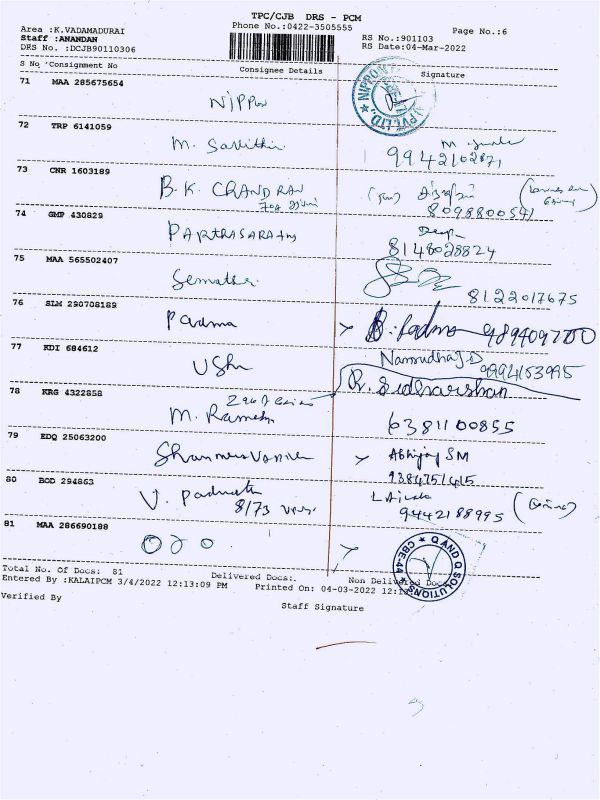 TPC/CJB DRS - PCM
Area :K.VADAMADURAI
Phone No.:0422-3505555
Page No.:6
Staff :ANANDAN
RS No.:901103
DRS No. :DCJB90110306
RS Date:04-Mar-2022
S No Consignment No Consignee Details Signature
71 MAA 285675654
Nippon
NIPPON PVT.LTD.
72 TRP 6141059
M. Savithiri
9942102871
73 CNR 1603189
B.K. CHANDRAN
8098800541
74 GMP 430829
PARTHASARATHY
8148028824
75 MAA 565502407
8122017675
76 SLM 290708189
Padma
B. Padma 9894097700
77 KDI 684612
Usha
9994153995
R. Sudharshan
78 KRG 4322858
M. Ramesh
6381100855
79 EDQ 25063200
Abhijay SM
9384751415
80 BOD 294863
V. Padmavathi
8/73
9442188995
81 MAA 286690188
Q AND Q SOLUTIONS
CBE-44
Total No. Of Docs: 81 Delivered Docs:. Non Delivered Docs
Entered By :KALAIPCM 3/4/2022 12:13:09 PM Printed On: 04-03-2022
Verified By
Staff Signature